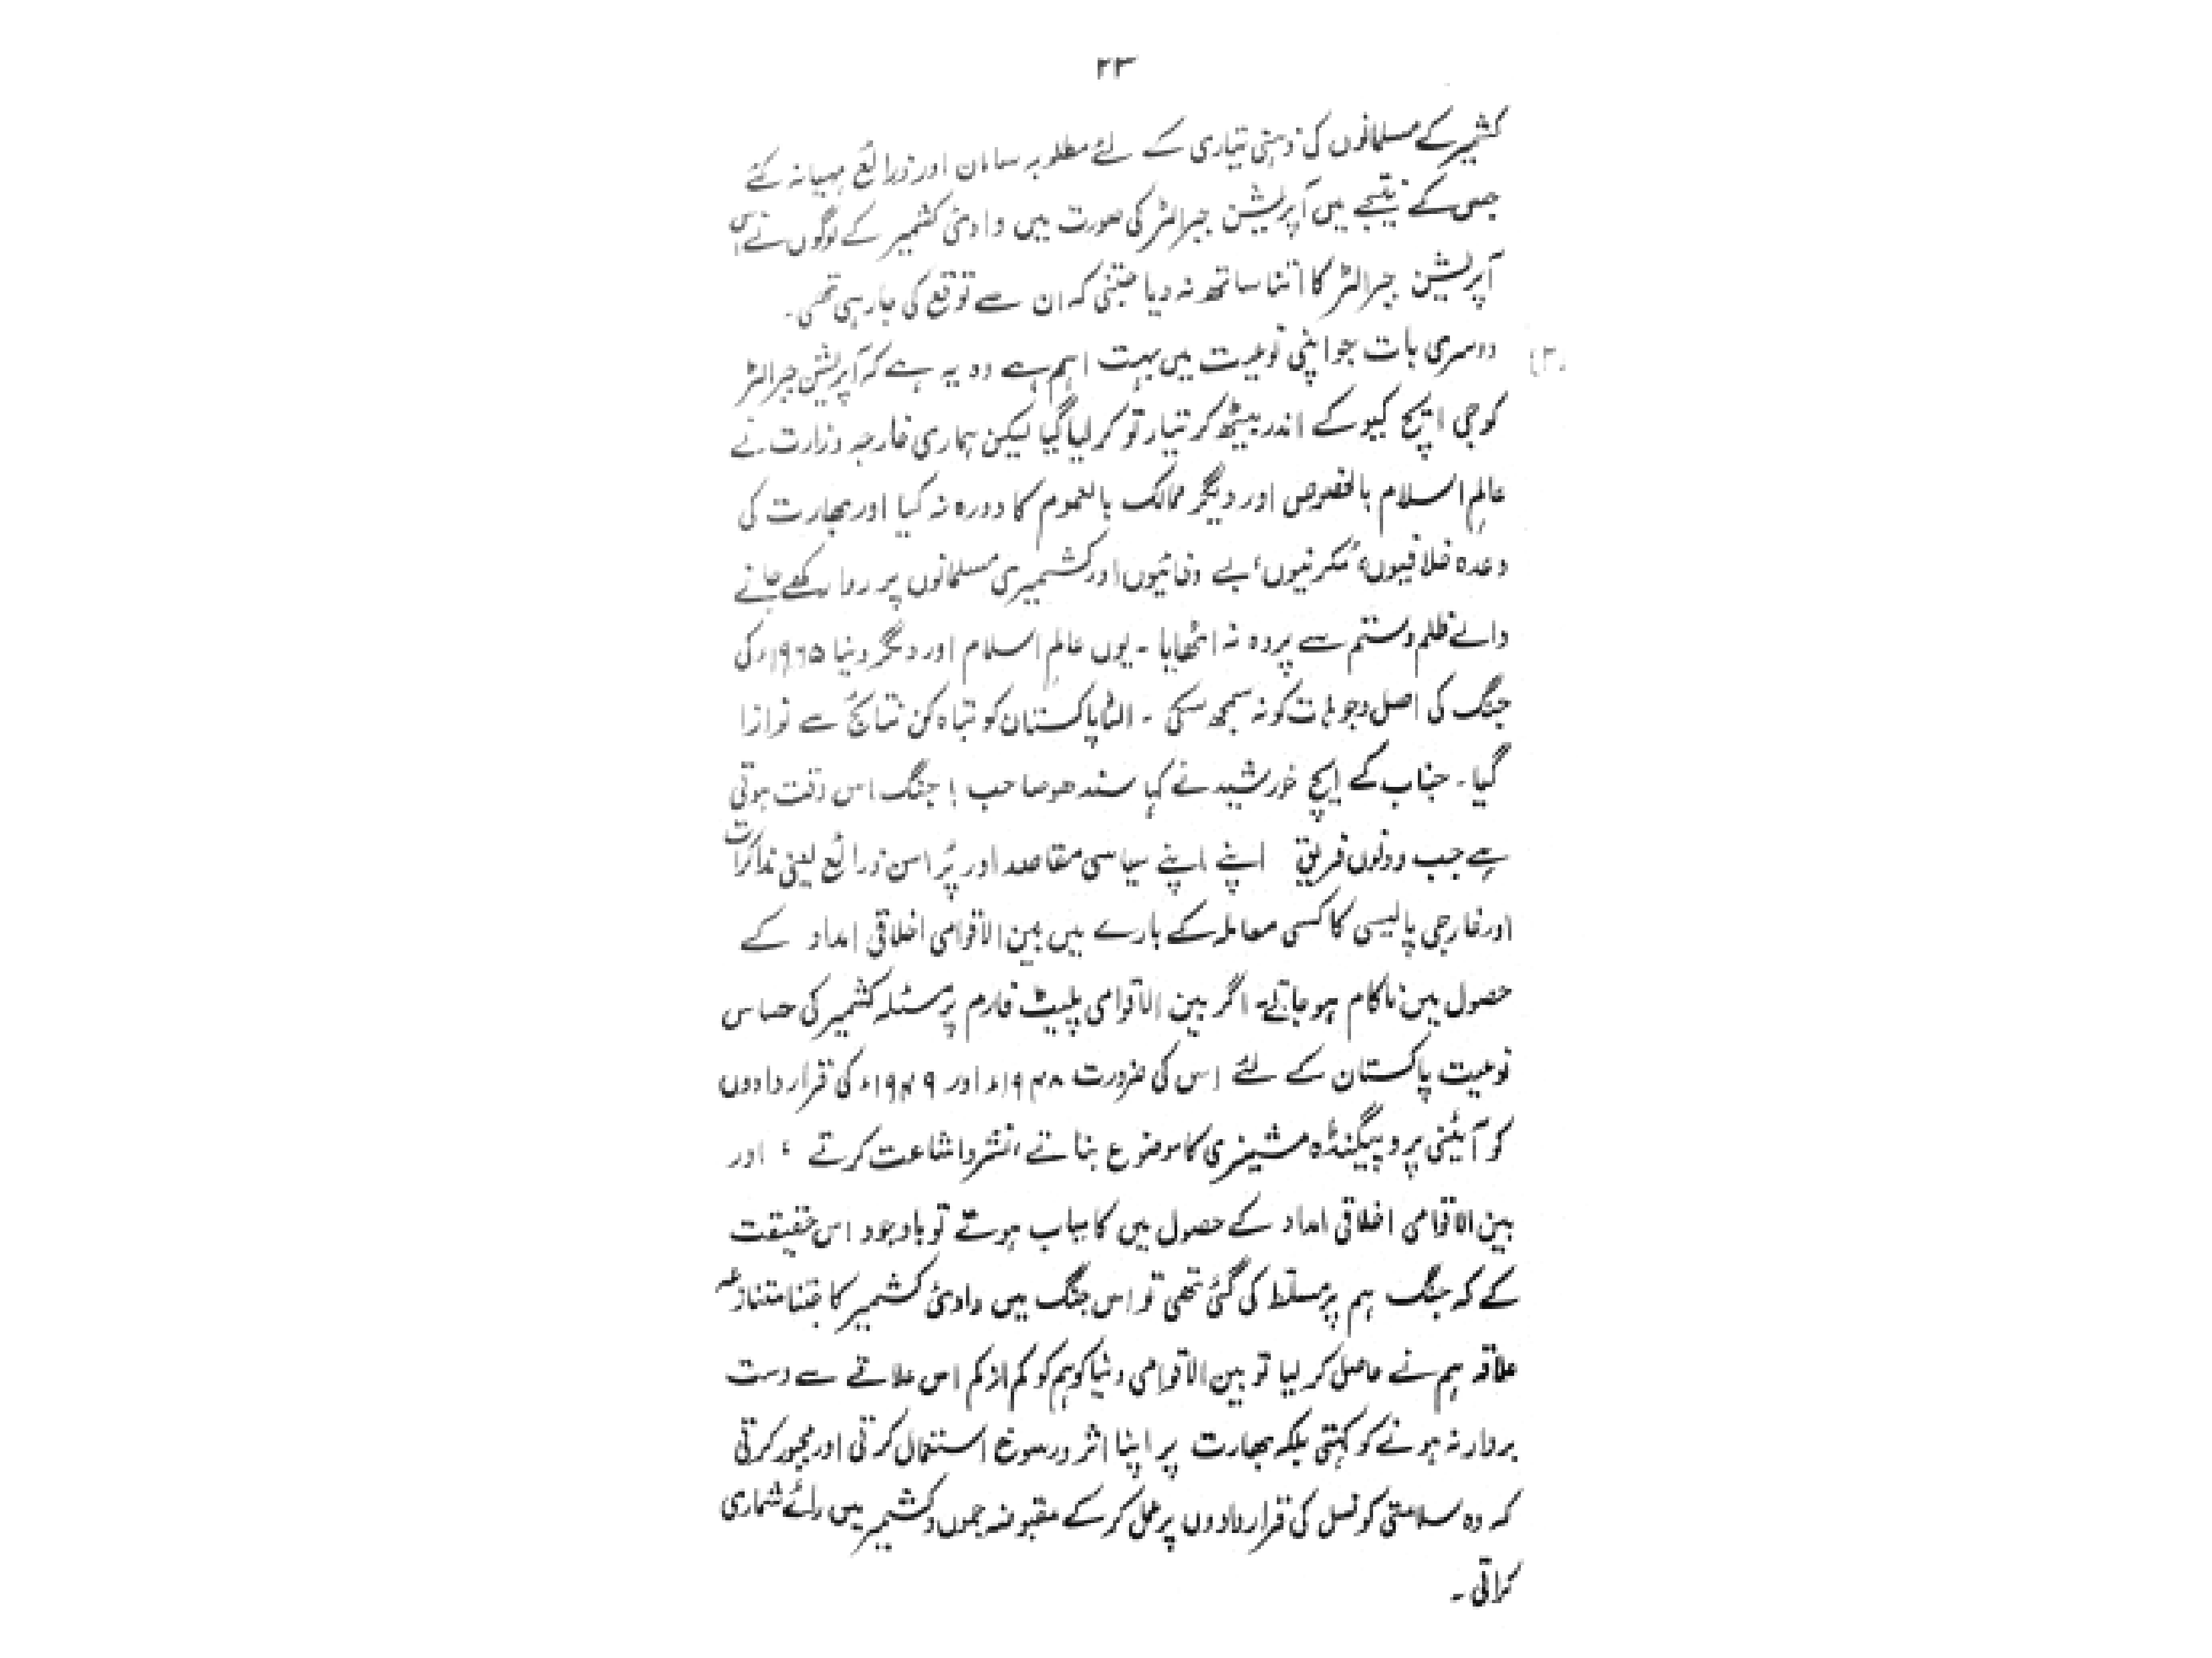 ۲۳
کشمیر کے مسلمانوں کی ذہنی تیاری کے لئے مطلوبہ سامان اور ذرائع مہیا نہ کئے
جس کے نتیجے میں آپریشن جبرالٹر کی صورت میں وادئ کشمیر کے لوگوں نے اس
آپریشن جبرالٹر کا اتنا ساتھ نہ دیا جتنی کہ ان سے توقع کی جا رہی تھی۔
(۳) دوسری بات جو اپنی نوعیت میں بہت اہم ہے وہ یہ ہے کہ آپریشن جبرالٹر
کو جی ایچ کیو کے اندر بیٹھ کر تیار تو کر لیا گیا لیکن ہماری خارجہ وزارت نے
عالمِ اسلام بالخصوص اور دیگر ممالک بالعموم کا دورہ نہ کیا اور بھارت کی
وعدہ خلافیوں، مُکرنیوں، بے وفائیوں اور کشمیری مسلمانوں پر روا رکھے جانے
والے ظلم و ستم سے پردہ نہ اٹھایا ۔ یوں عالمِ اسلام اور دیگر دنیا ۱۹۶۵ء کی
جنگ کی اصل وجوہات کو نہ سمجھ سکی ۔ الٹا پاکستان کو تباہ کن نتائج سے نوازا
گیا ۔ جناب کے ایچ خورشید نے کہا سندھو صاحب ! جنگ اس وقت ہوتی
ہے جب دونوں فریق اپنے اپنے سیاسی مقاصد اور پُر امن ذرائع یعنی مذاکرات
اور خارجی پالیسی کا کسی معاملہ کے بارے میں بین الاقوامی اخلاقی امداد کے
حصول میں ناکام ہو جاتے۔ اگر بین الاقوامی پلیٹ فارم پر مسئلہ کشمیر کی حساس
نوعیت پاکستان کے لئے اس کی ضرورت ۱۹۴۸ء اور ۱۹۴۹ء کی قراردادوں
کو آئینی پروپیگنڈہ مشینری کا موضوع بناتے ، نشر و اشاعت کرتے ، اور
بین الاقوامی اخلاقی امداد کے حصول میں کامیاب ہوتے تو باوجود اس حقیقت
کے کہ جنگ ہم پر مسلّط کی گئی تھی تو اس جنگ میں وادئ کشمیر کا جتنا متنازعہ
علاقہ ہم نے حاصل کر لیا تو بین الاقوامی دنیا کو ہم کو کم از کم اس علاقے سے دست
بردار نہ ہونے کو کہتی بلکہ بھارت پر اپنا اثر و رسوخ استعمال کرتی اور مجبور کرتی
کہ وہ سلامتی کونسل کی قراردادوں پر عمل کر کے مقبوضہ جموں و کشمیر میں رائے شماری
کراتی ۔